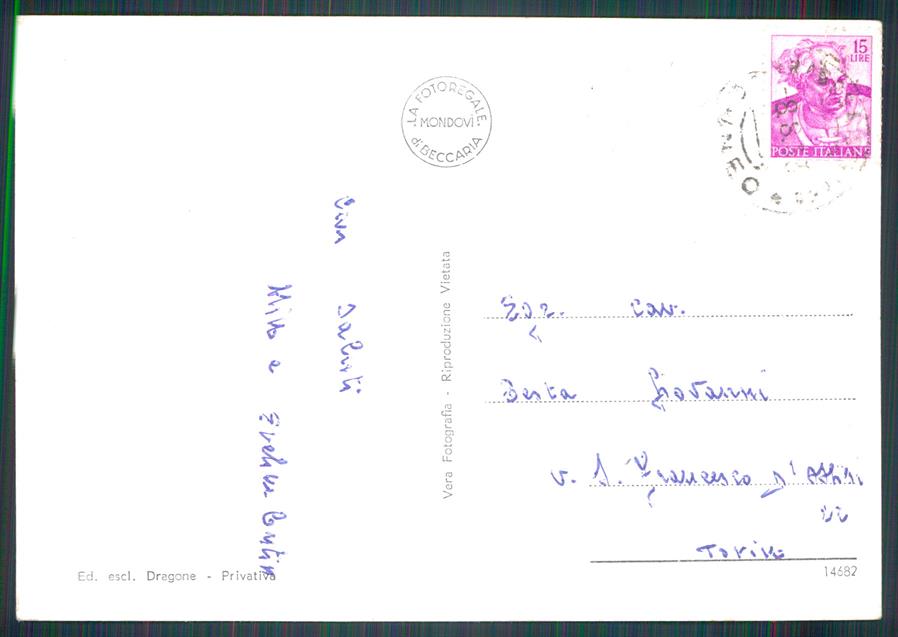 LA FOTOREGALE
MONDOVÌ
di BECCARIA
15
LIRE
POSTE ITALIANE
Cari Saluti
Mito e Evelina
Vera Fotografia - Riproduzione Vietata
Egr. Cav.
Giovanni
v. S. Francesco D'Assisi
22
Torino
Ed. escl. Dragone - Privativa
14682